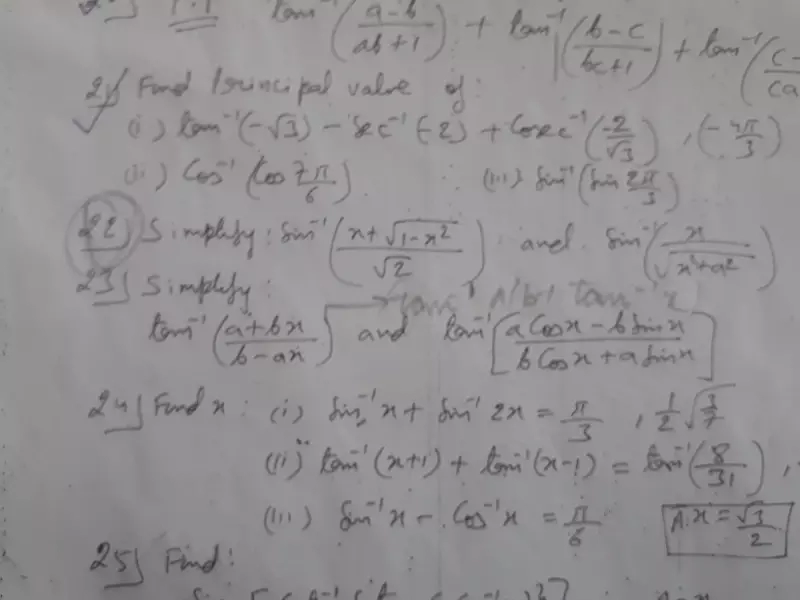 tan⁻¹((a-b)/(ab+1)) + tan⁻¹((b-c)/(bc+1)) + tan⁻¹(
21) Find Principal value of :
(i) tan⁻¹(-√3) - sec⁻¹(-2) + Cosec⁻¹(-2/√3) , (-4π/3)
(ii) Cos⁻¹(Cos 7π/6) (iii) Sin⁻¹(Sin 2π/3)
22) Simplify: Sin⁻¹((x+√(1-x²))/√2) and Sin⁻¹(x/√(x²+a²))
23) Simplify:
tan⁻¹ a/b + tan⁻¹ x
tan⁻¹((a+bx)/(b-ax)) and tan⁻¹[(a Cosx - b Sinx)/(b Cosx + a Sinx)]
24) Find x : (i) Sin⁻¹x + Sin⁻¹ 2x = π/3 , 1/2 √(3/7)
(ii) tan⁻¹(x+1) + tan⁻¹(x-1) = tan⁻¹(8/31) ,
(iii) Sin⁻¹x - Cos⁻¹x = π/6 A. x = √3/2
25) Find :